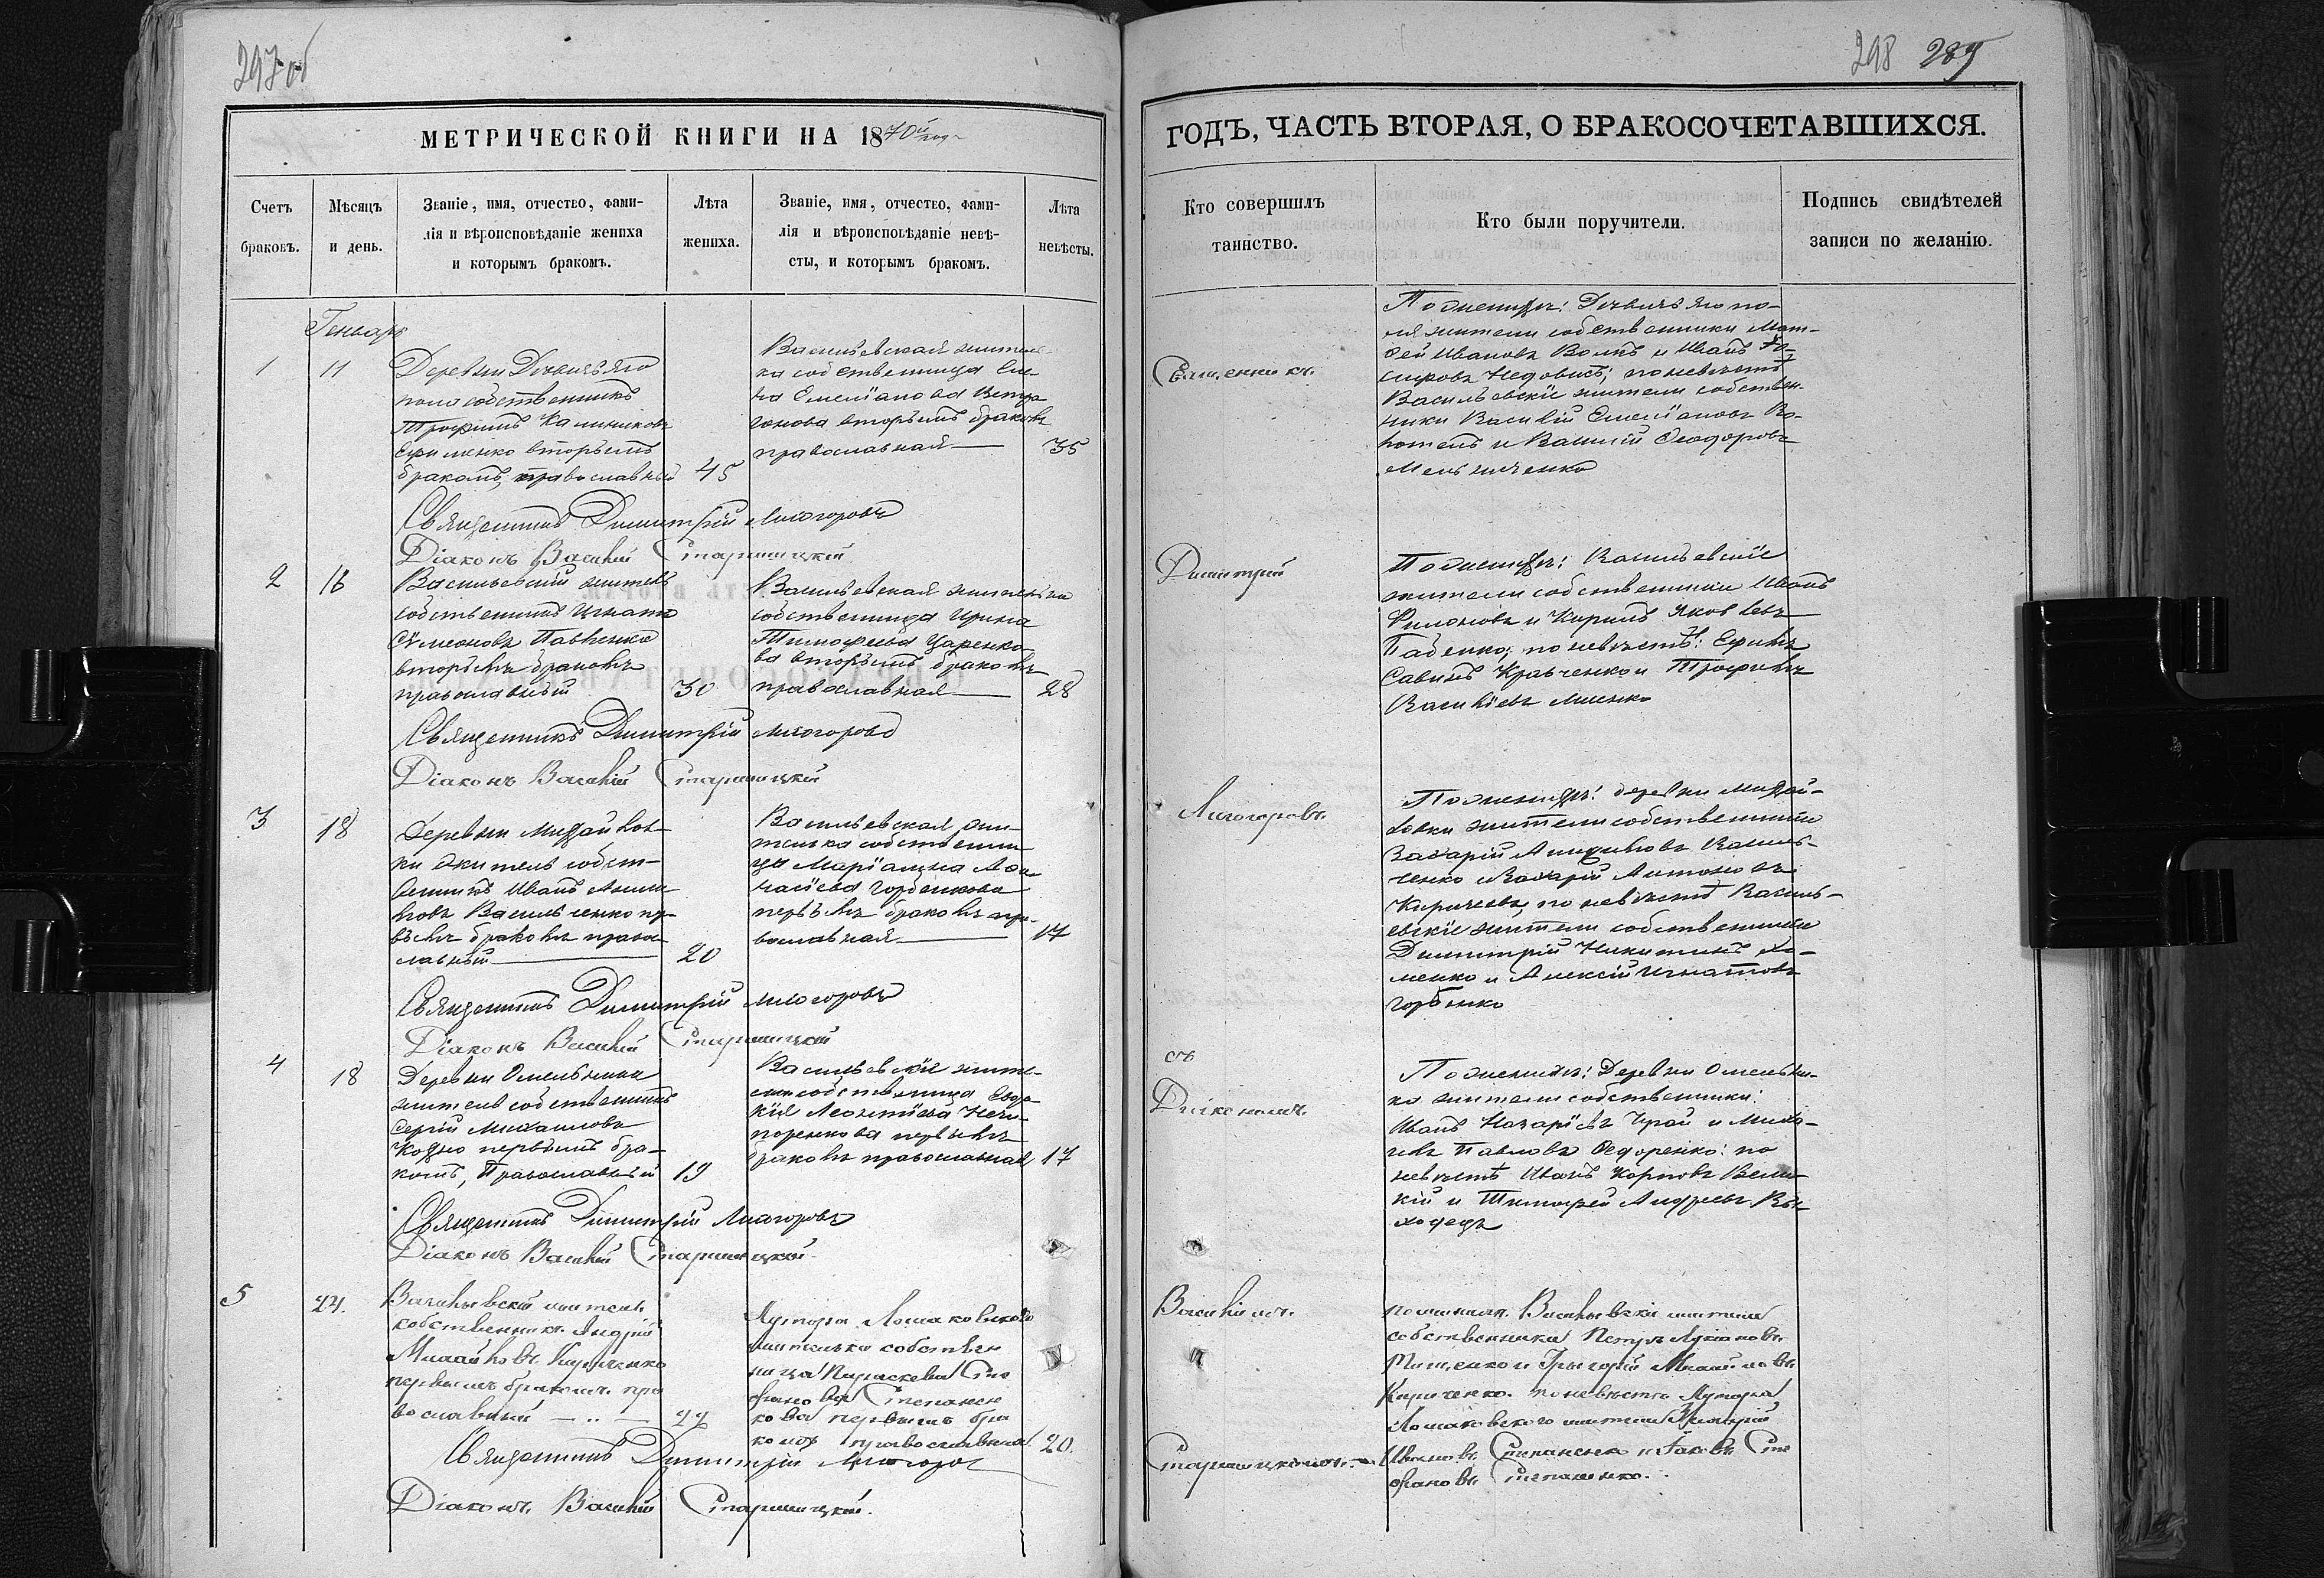 297 об
МЕТРИЧЕСКОЙ КНИГИ НА 1870й год
Счетъ
браковъ.
Мѣсяцъ
и день.
Званіе, имя, отчество, фами-
лія и вѣроисповѣданіе жениха
и которымъ бракомъ.
Лѣта
жениха.
Званіе, имя, отчество, фами-
лія и вѣроисповѣданіе невѣ-
сты, и которымъ бракомъ.
Лѣта
невѣсты.
Генварь
1
11
Деревни
поля собственникъ
Трофимъ Калиниковъ
Ефименко вторымъ
бракомъ, православный
45
Васильевская житель-
ка собственница Еле-
на Емеліанова
вторымъ бракомъ
православная
35
Священникъ Димитрій Лисогоровъ
Діаконъ Василій Старицкій
2
16
Васильевскій житель
собственникъ Игнатъ
Сѵмеоновъ Павленко
вторымъ бракомъ
православный
30
Васильевская жителька
собственница Ирина
Тимофеева Царенко-
ва вторымъ бракомъ
православная
28
Священникъ Димитрій Лисогоровъ
Діаконъ Василій Старицкій
3
18
Деревни Михайлов-
ки житель собст-
венникъ Иванъ
Васильченко пер-
вымъ бракомъ право-
славный
20
Васильевская жи-
телька собственни-
ца Маріанна Афа-
насіева Горбенкова
первымъ бракомъ пра-
вославная
17
Священникъ Димитрій Лисогоровъ
Діаконъ Василій Старицкій
4
18
Деревни Омельника
житель собственникъ
Сергій Михаиловъ
первымъ бра-
комъ, Православный
19
Васильевскіе жите-
ли собственница Евдо-
кія Леонтіева Нечи-
поренкова первымъ
бракомъ православная
17
Священникъ Димитрій Лисогоровъ
Діаконъ Василій Старицкій
5
24.
Васильевскій житель
собственникъ Андрій
Михайловъ Кириченко
первымъ бракомъ пра
вославный
22
Хутора Ломаковского
жителька собствен
ница Параскева Сте
фанова Степанен
кова первымъ бра
комъ православная
20.
Священникъ Димитрій Лисогоровъ
Діаконъ Василій Старицкій.
298 289
ГОДЪ, ЧАСТЬ ВТОРАЯ, О БРАКОСОЧЕТАВШИХСЯ.
Кто совершилъ
таинство.
Кто были поручители.
Подпись свидѣтелей
записи по желанію.
Священникъ
Димитрій
Лисогоровъ
съ
Діакономъ
Василіемъ
Старицкимъ.
По женихѣ:
ля жители собственники Мат-
фей Ивановъ Волкъ и Иванъ
по невѣстѣ
Васильевскіе жители собствен-
ники Василій Емеліановъ
и Василій Феодоровъ
Мельниченко
По женихѣ: Васильевскіе
жители собственники Иванъ
Филоновъ и Кирилъ Яковлевъ
по невѣстѣ: Ефимъ
Савинъ Кравченко и Трофимъ
Василіевъ
По женихѣ: деревни Михай-
ловки жители собственники
Захарій Василь-
ченко и Захарій Антоновъ
по невѣстѣ Василь-
евскіе жители собственники
Димитрій Никитинъ Хо-
менко и Алексій Игнатовъ
Горбенко
По женихѣ: Деревни Омельни-
ка жители собственники:
Иванъ Назаріевъ и Миха-
илъ Павловъ Федоренко: по
невѣстѣ Иванъ Карповъ Вели-
кій и Тимофей Андреевъ Вы-
ходецъ
по женихѣ. Васильевскіе жители
собственники Петръ Лукіановъ
Тищенко и Григорій Михайловъ
Кириченко. по невѣстѣ Хутора
Ломаковского жители
Ивановъ Степаненко и Яковъ Сте
фановъ Степаненко.